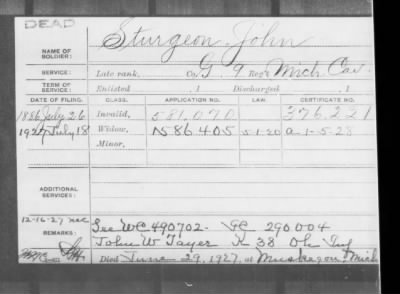 DEAD
NAME OF SOLDIER: Sturgeon, John
SERVICE: Late rank, Co. G. 9 Reg't Mich Cav.
TERM OF SERVICE: Enlisted , 1 Discharged , 1
DATE OF FILING. CLASS. APPLICATION NO. LAW. CERTIFICATE NO.
1886 July 26 Invalid, 581,070 376,221
1927 July 18 Widow, 1586405 5-1-20 a-1-5-28
Minor,
ADDITIONAL SERVICES:
12-16-27 See WC 490702- GC 290004
REMARKS: John W Tayer K 38 Oh Inf
Died June 29, 1927, at Muskegon, Mich